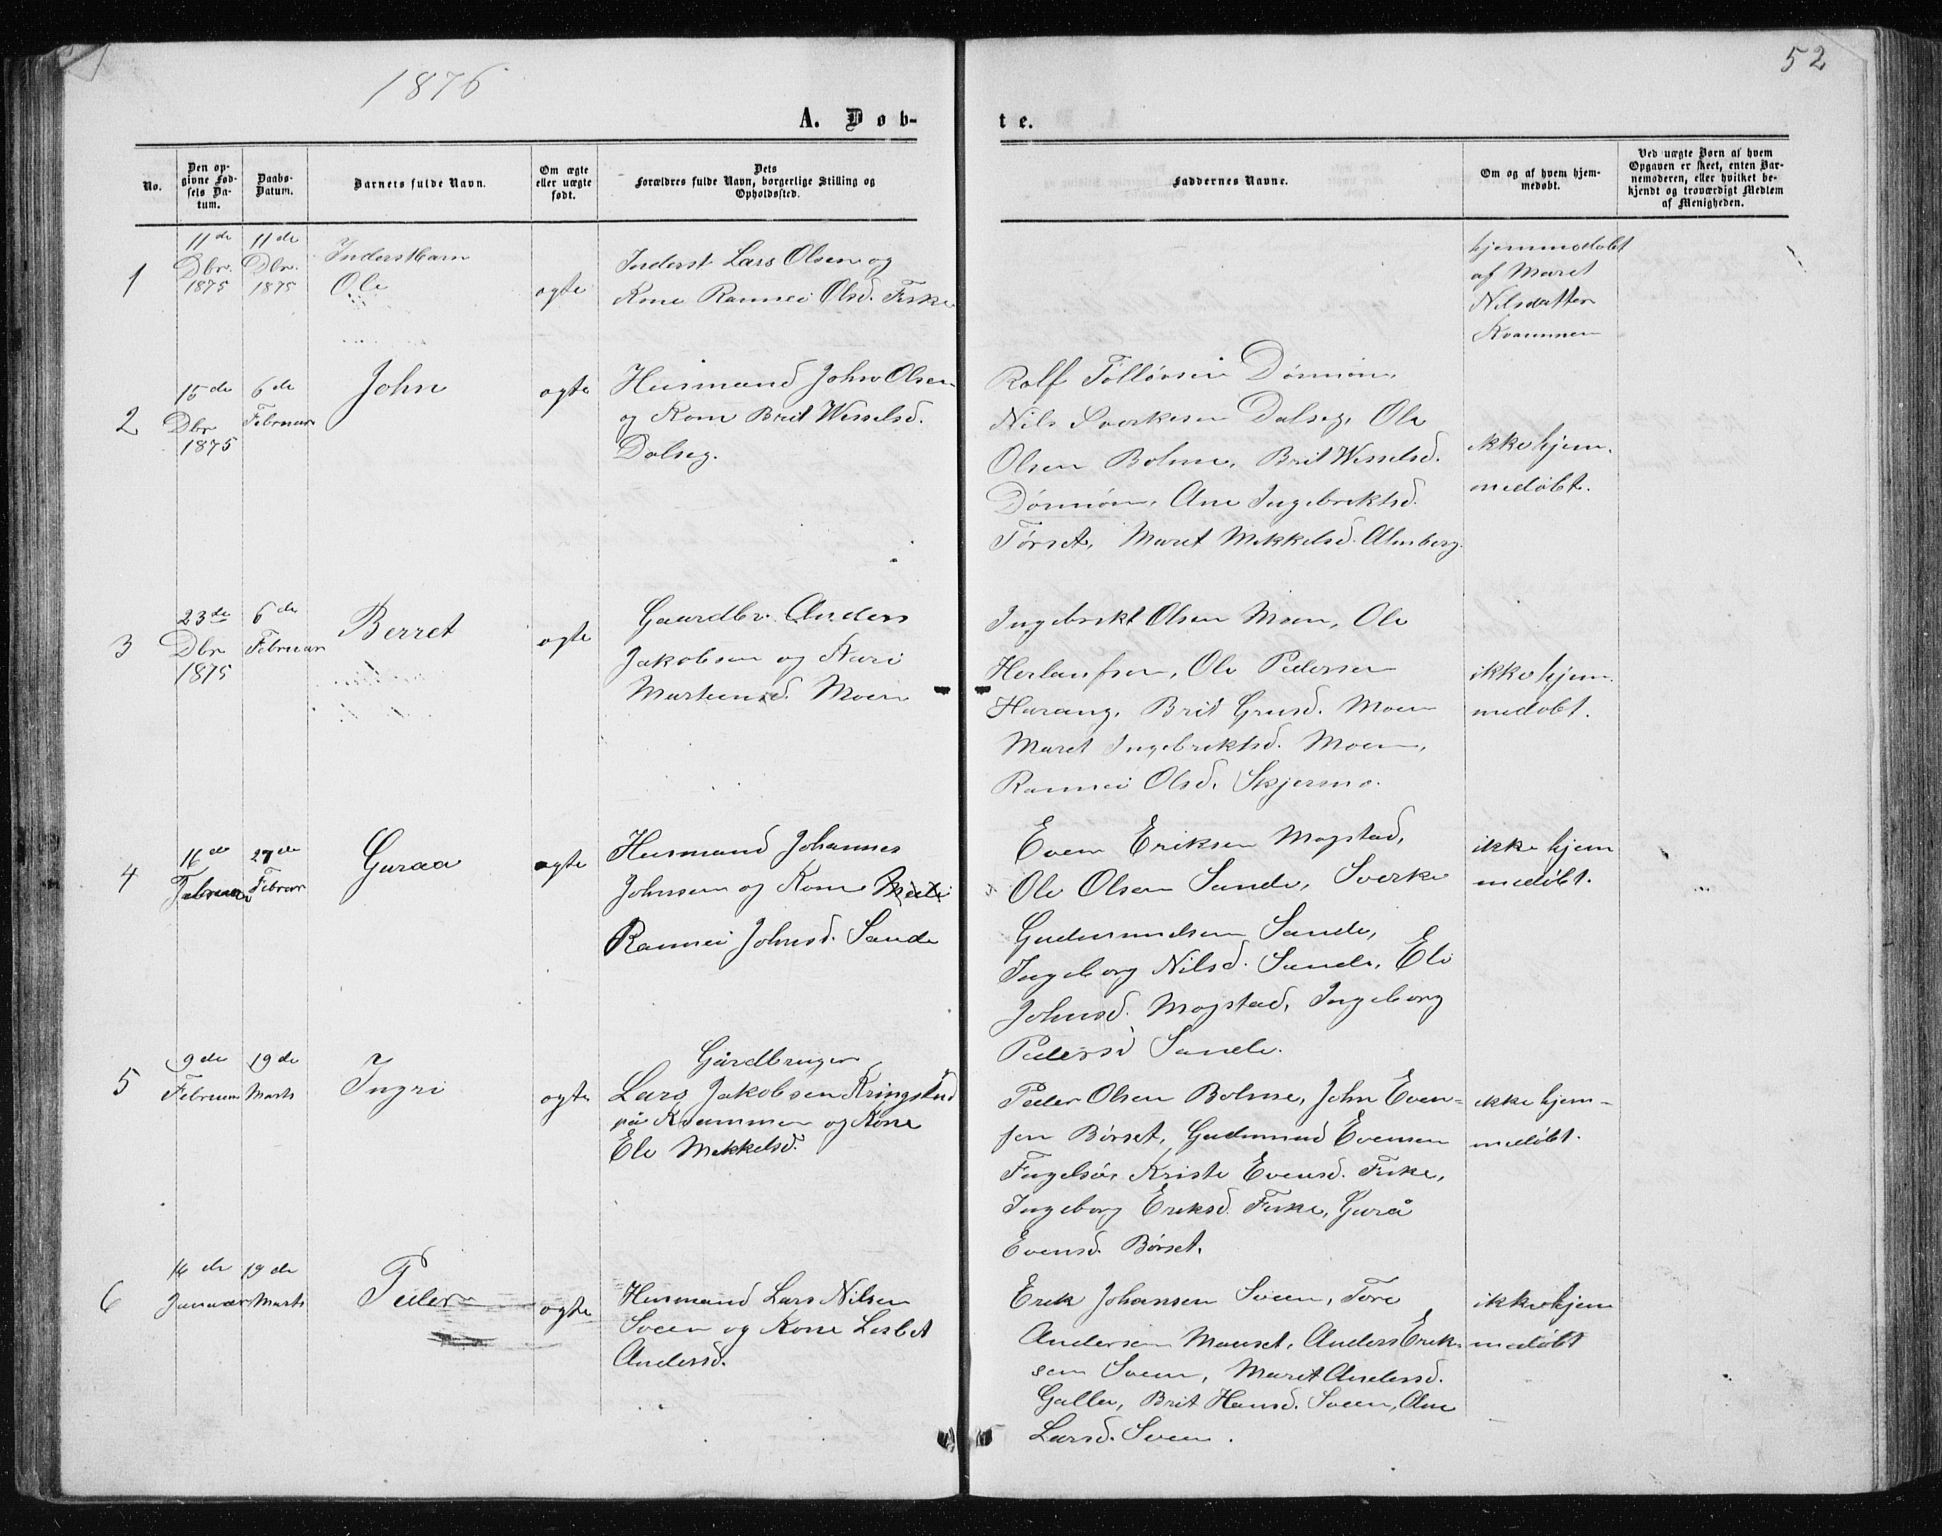 1876
52
A. Døb-
te.
No.
Den op-
givne Fød-
sels Da-
tum.
Daabs-
Datum.
Barnets fulde Navn.
Om ægte
eller uægte
født.
Dets
Forældres fulde Navn, borgerlige Stilling og
Opholdssted.
Faddernes Navne.
Om og af hvem hjem-
medøbt.
Ved uægte Børn af hvem
Opgaven er skeet, enten Bar-
nemoderen, eller hvilket be-
kjendt og troværdigt Medlem
af Menigheden.
1
11de
Dbr.
1875
11de
Dbr.
1875
Inderstbarn
Ole
ægte
Inderst Lars Olsen og
Kone Rannei Olsd. Fiske
hjemmedøbt
af Maret
Nilsdatter
Kvammen
2
15de
Dbr
1875
6de
Februar
John
ægte
Husmand John Olsen
og Kone Brit Wesselsd.
Dalseg.
Rolf Tolløvsen Dønnøm,
Nils Sverkesen Dalseg, Ole
Olsen Bolme, Brit Wesselsd.
Dønnøm, Ane Ingebriktsd.
Tørset, Maret Mekkelsd. Almberg.
ikke hjem-
medøbt.
3
23de
Dbr
1875
6de
Februar
Berret
ægte
Gaardbr. Anders
Jakobsen og Mari
Martensd. Moen
Ingebrikt Olsen Moen, Ole
Herlaufsen, Ole Pedersen
Harang, Brit Grusd. Moen
Maret Ingebriktsd. Moen,
Rannei Olsd. Skjermo.
ikke hjem-
medøbt.
4
16de
Februar
27de
Februar
Guraa
ægte
Husmand Johannes
Johnsen og Kone
Rannei Johnsd. Sande
Even Eriksen Mogstad,
Ole Olsen Sande, Sverke
Gudmundsen Sande,
Ingeborg Nilsd. Sande, Eli
Johnsd. Mogstad, Ingeborg
Pedersd Sande.
ikke hjem
medøbt.
5
9de
Februar
19de
Marts
Ingri
ægte
Gårdbruger
Lars Jakobsen Kringslud
på Kvammen og Kone
Eli Mekkelsd.
Peder Olsen Bolme, John Even-
sen Børset, Gudmund Evensen
Fugelsø, Kristi Evensd. Fiske,
Ingeborg Eriksd. Fiske, Gurå
Evensd. Børset.
ikke hjem-
medøbt.
6
16de
Januar
19de
Marts
Peder
ægte
Husmand Lars Nilsen
Sveen og Kone Lisbet
Andersd.
Erik Johansen Sveen, Tore
Andersen Mauset, Anders Erik-
sen Sveen, Maret Andersd.
Galler, Brit Hansd. Sveen, Ane
Larsd. Sveen.
ikke hjem
medøbt